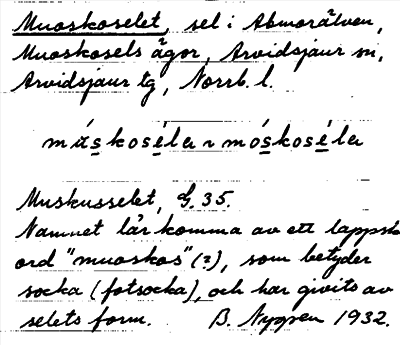 Muoskoselet, sel i Abmorälven,
Muoskosels ägor, Arvidsjaur sn,
Arvidsjaur tg, Norrb. l.
múskoséla ~ móskoséla
Muskusselet, G. 35.
Namnet lär komma av ett lappsk
ord "muoskos" (?), som betyder
socka (fotsocka), och har givits av
selets form. B. Nygren 1932.